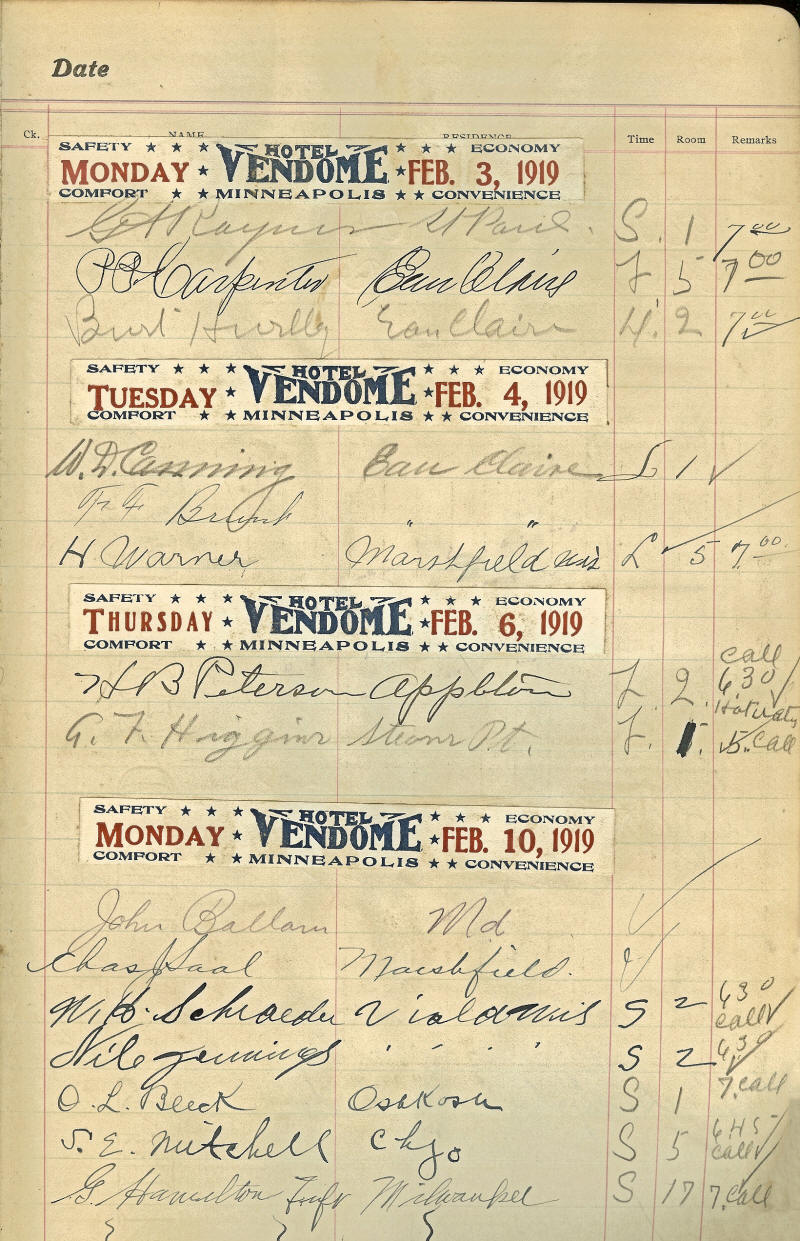 Date
Ck. NAME RESIDENCE Time Room Remarks
SAFETY ★ ★ ★ HOTEL ★ ★ ★ ECONOMY
MONDAY ★ VENDOME ★ FEB. 3, 1919
COMFORT ★ ★ MINNEAPOLIS ★ ★ CONVENIENCE
St Paul. S. 1 7 00
Carpenter Eau Claire 5 7 00
Burt Hurlly Eau Claire 2 7 00
SAFETY ★ ★ ★ HOTEL ★ ★ ★ ECONOMY
TUESDAY ★ VENDOME ★ FEB. 4, 1919
COMFORT ★ ★ MINNEAPOLIS ★ ★ CONVENIENCE
W. D. Canning Eau Claire 1 ✓
F F " "
H Warner Marshfield Wis L ✓ 5 7.00
SAFETY ★ ★ ★ HOTEL ★ ★ ★ ECONOMY
THURSDAY ★ VENDOME ★ FEB. 6, 1919
COMFORT ★ ★ MINNEAPOLIS ★ ★ CONVENIENCE
call
H B Peterson Appleton 2. 630 ✓
G. F. Higgins Stevns Pt. 1. 5. Call
SAFETY ★ ★ ★ HOTEL ★ ★ ★ ECONOMY
MONDAY ★ VENDOME ★ FEB. 10, 1919
COMFORT ★ ★ MINNEAPOLIS ★ ★ CONVENIENCE
John Ballam Md ✓
Chas Haal Marshfield. ✓
W. H. Schraeder Viola Wis S 2 630 call ✓
Nile Jennings " " " " S 2 630 ✓
O. L. Beeck Oshkosh S 1 7. Call
S. E. Mitchell Chgo S 5 645 call ✓
G. Hamilton Milwaukee S 17 7. Call